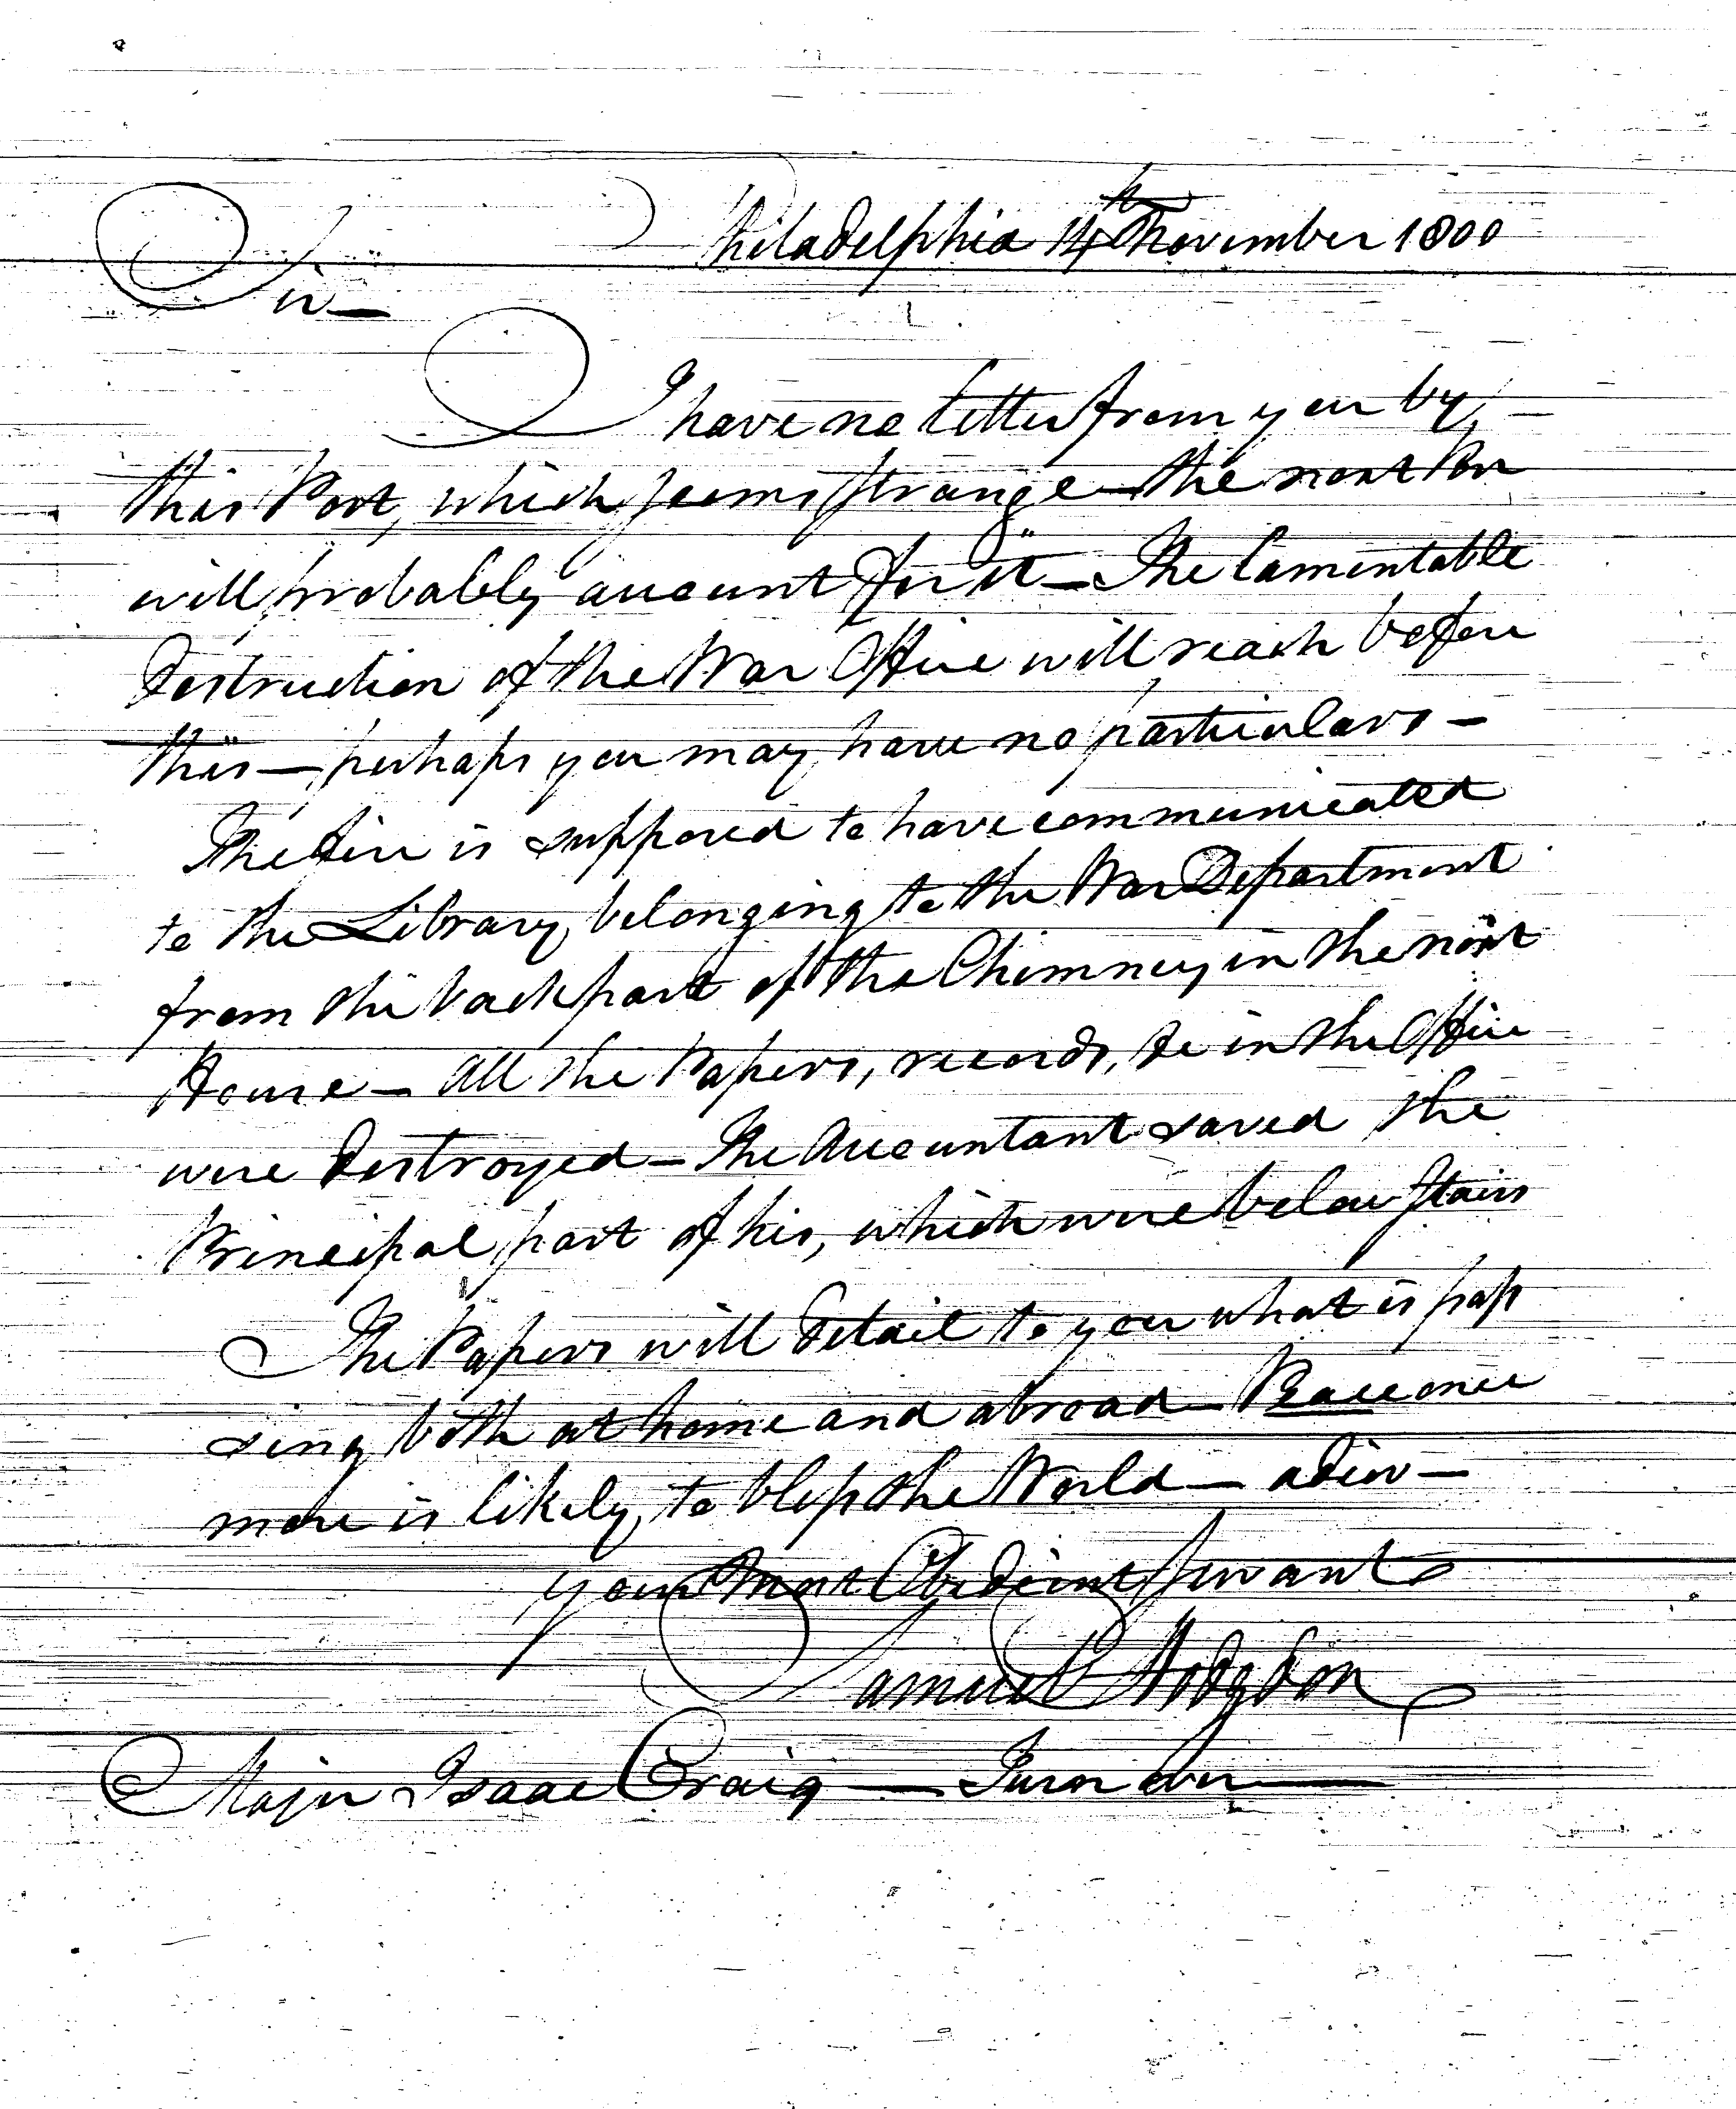 Philadelphia 14th November 1800
Sir —
I have no letter from you by
this Post, which seems strange — the next
will probably account for it — The lamentable
destruction of the War Office will reach before
this — perhaps you may have no particulars —
The fire is supposed to have communicated
to the Library belonging to the War Department
from the back part of the Chimney in the next
House — All the Papers, records, &c in the Office
were destroyed — The Accountant saved the
Principal part of his, which were below Stairs
The Papers will detail to you what is pas
sing both at home and abroad — Peace once
more is likely to bless the World — adieu —
your Most Obedient Servant
Samuel Hodgdon
Major Isaac Craig — Turn over —